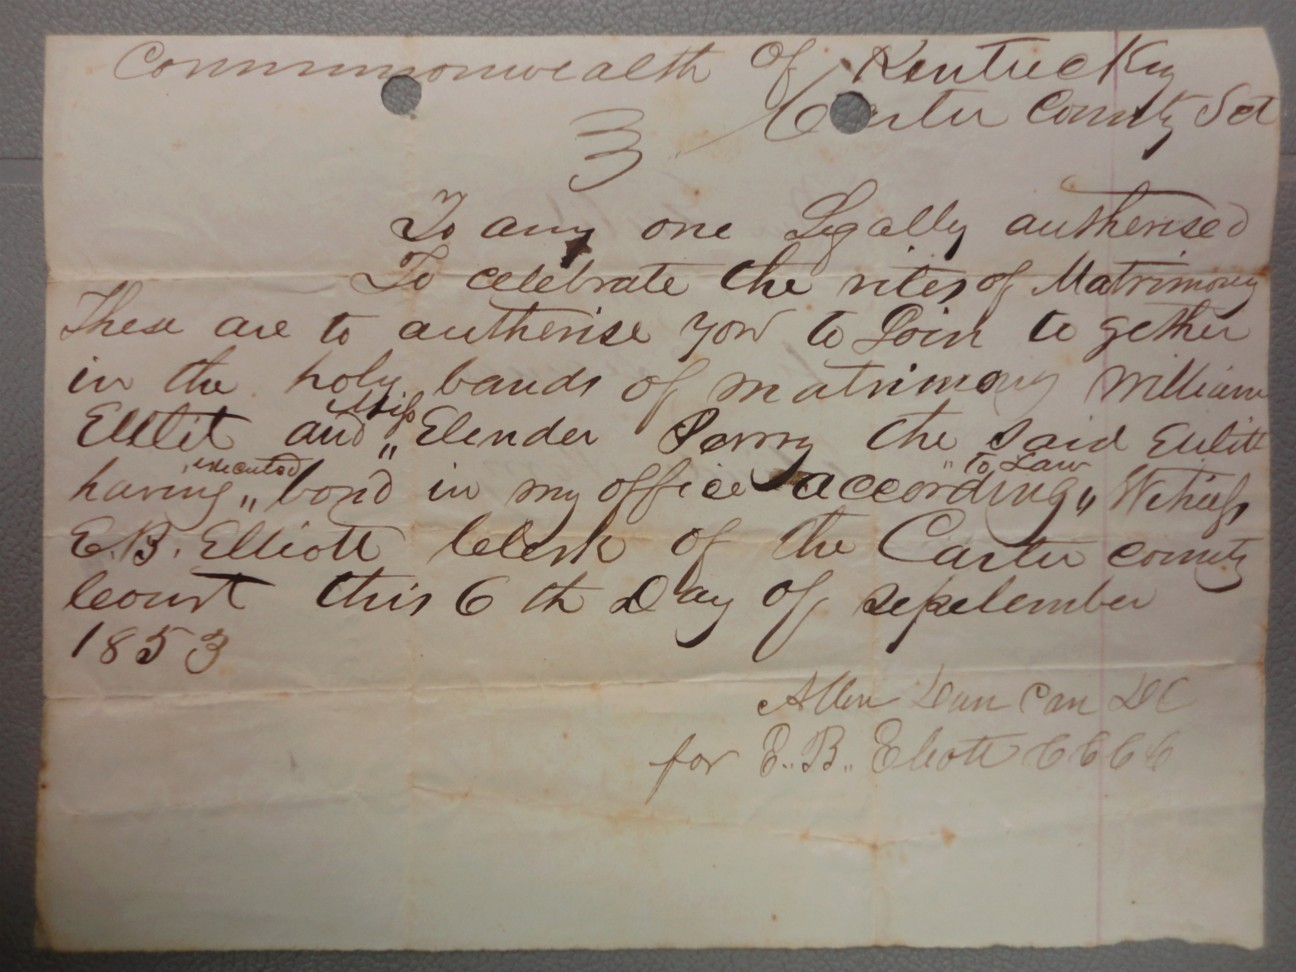 Commonwealth of Kentucky
Carter County Sct
To any one Legally autherised
To celebrate the rites of Matrimony
These are to autherise you to Join to gether
in the holy bands of matrimony William
Elltit and Miss Elender Parry the said Eulitt
having executed bond in my office according to Law Witness
E. B. Elliott Clerk of the Carter county
Court this 6 th Day of sepetember
1853
Allen Dun can DC
for E. B. Eliott CCCC